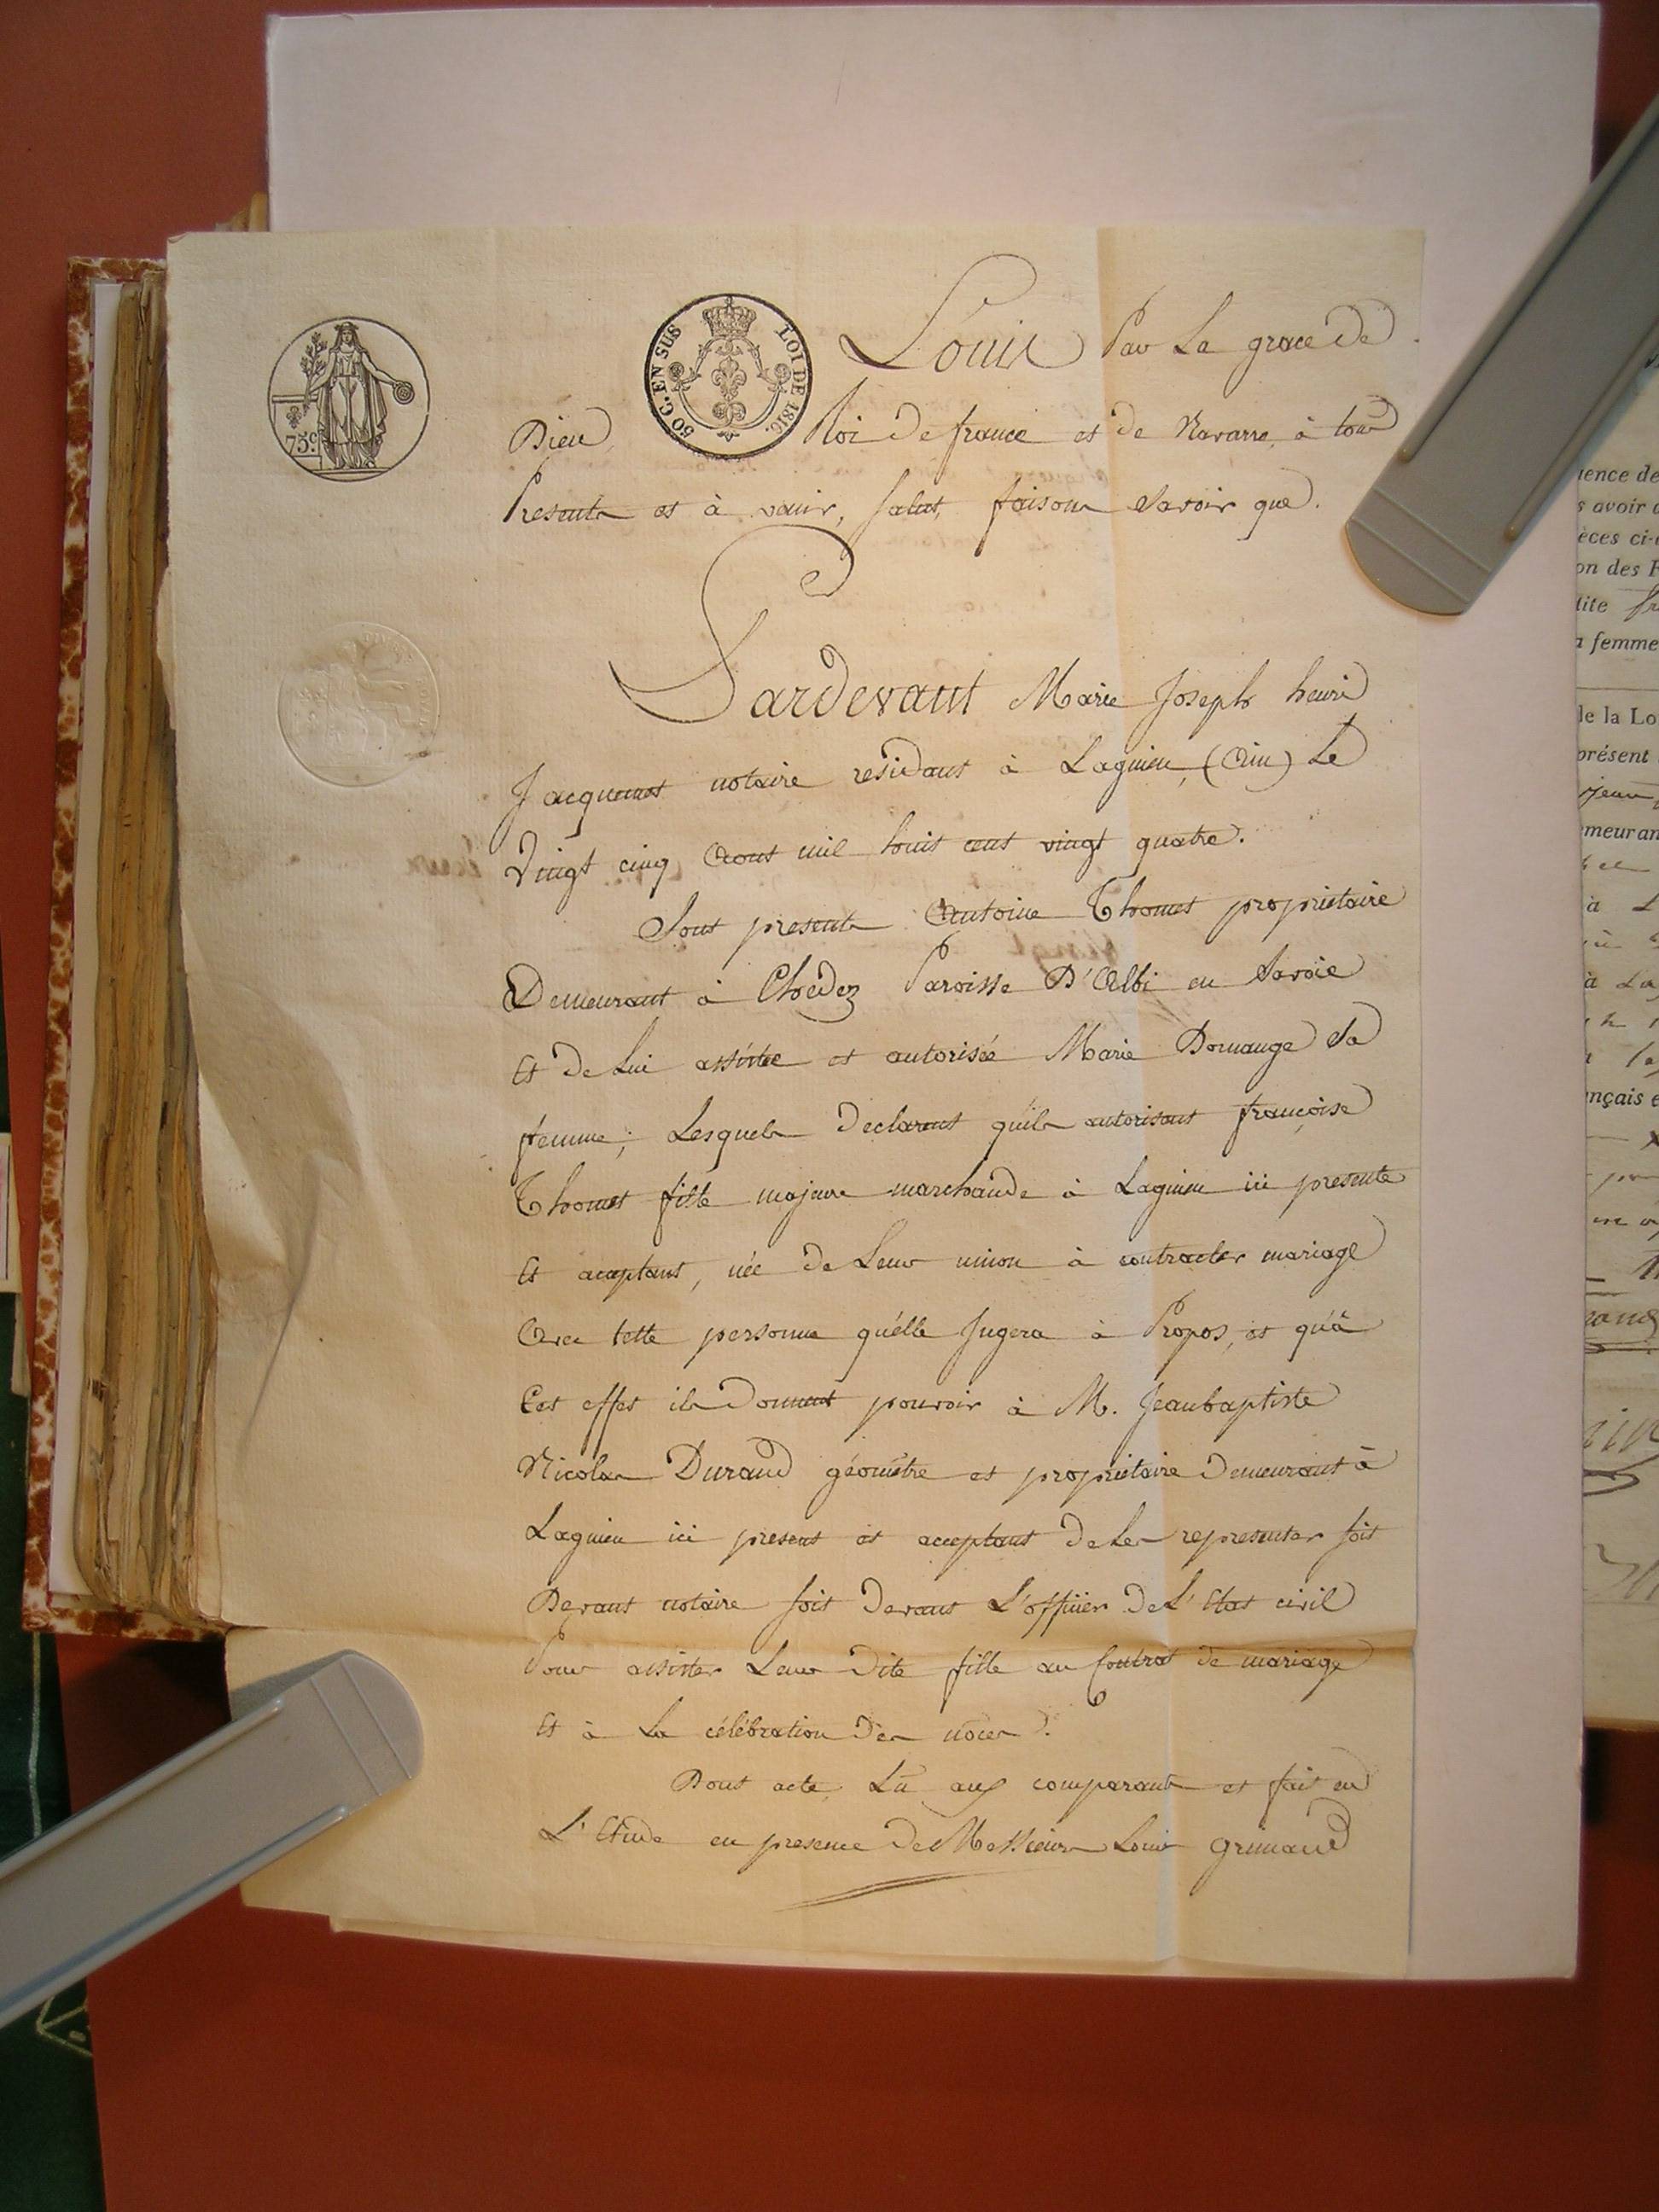 75.c
50 C. EN SUS LOI DE 1816.
Louis Par La grace de
Dieu, Roi de france et de Navarre, à tous
Presents et à venir, salut, faisons Savoir que.
Pardevant Marie Joseph henri
Jacquemet notaire residant à Lagnieu, (Ain) Le
Vingt cinq Aout mil huit cent vingt quatre.
Sont presents Antoine Thomet proprietaire
Demeurant à Paroisse D'Albi en Savoie
Et de Lui assistée et autorisée Marie Dornange Sa
femme; Lesquels declarent qu'ils autorisent françoise
Thomet fille majeure marchande à Lagnieu ici presente
Et aceptant, née de Leur union à contracter mariage
Avec telle personne qu'elle Jugera à Propos, et qu'à
Cet effet ils Donnent pouvoir à M. Jeanbaptiste
Nicolas Durand géomètre et proprietaire Demeurant à
Lagnieu ici present et acceptant de Les representer soit
Devant notaire soit devant L'officier de L'Etat civil
Pour assister Leur Dite fille au Contrat de mariage
Et à La célébration des nôces.
Dont acte, Lû aux comparants et fait en
L'Etude en presence de Messieurs Louis grimaud
ence de
s avoir
èces ci-
on des
dite
a femme
de la Lo
présent
meuran
à
nçais e